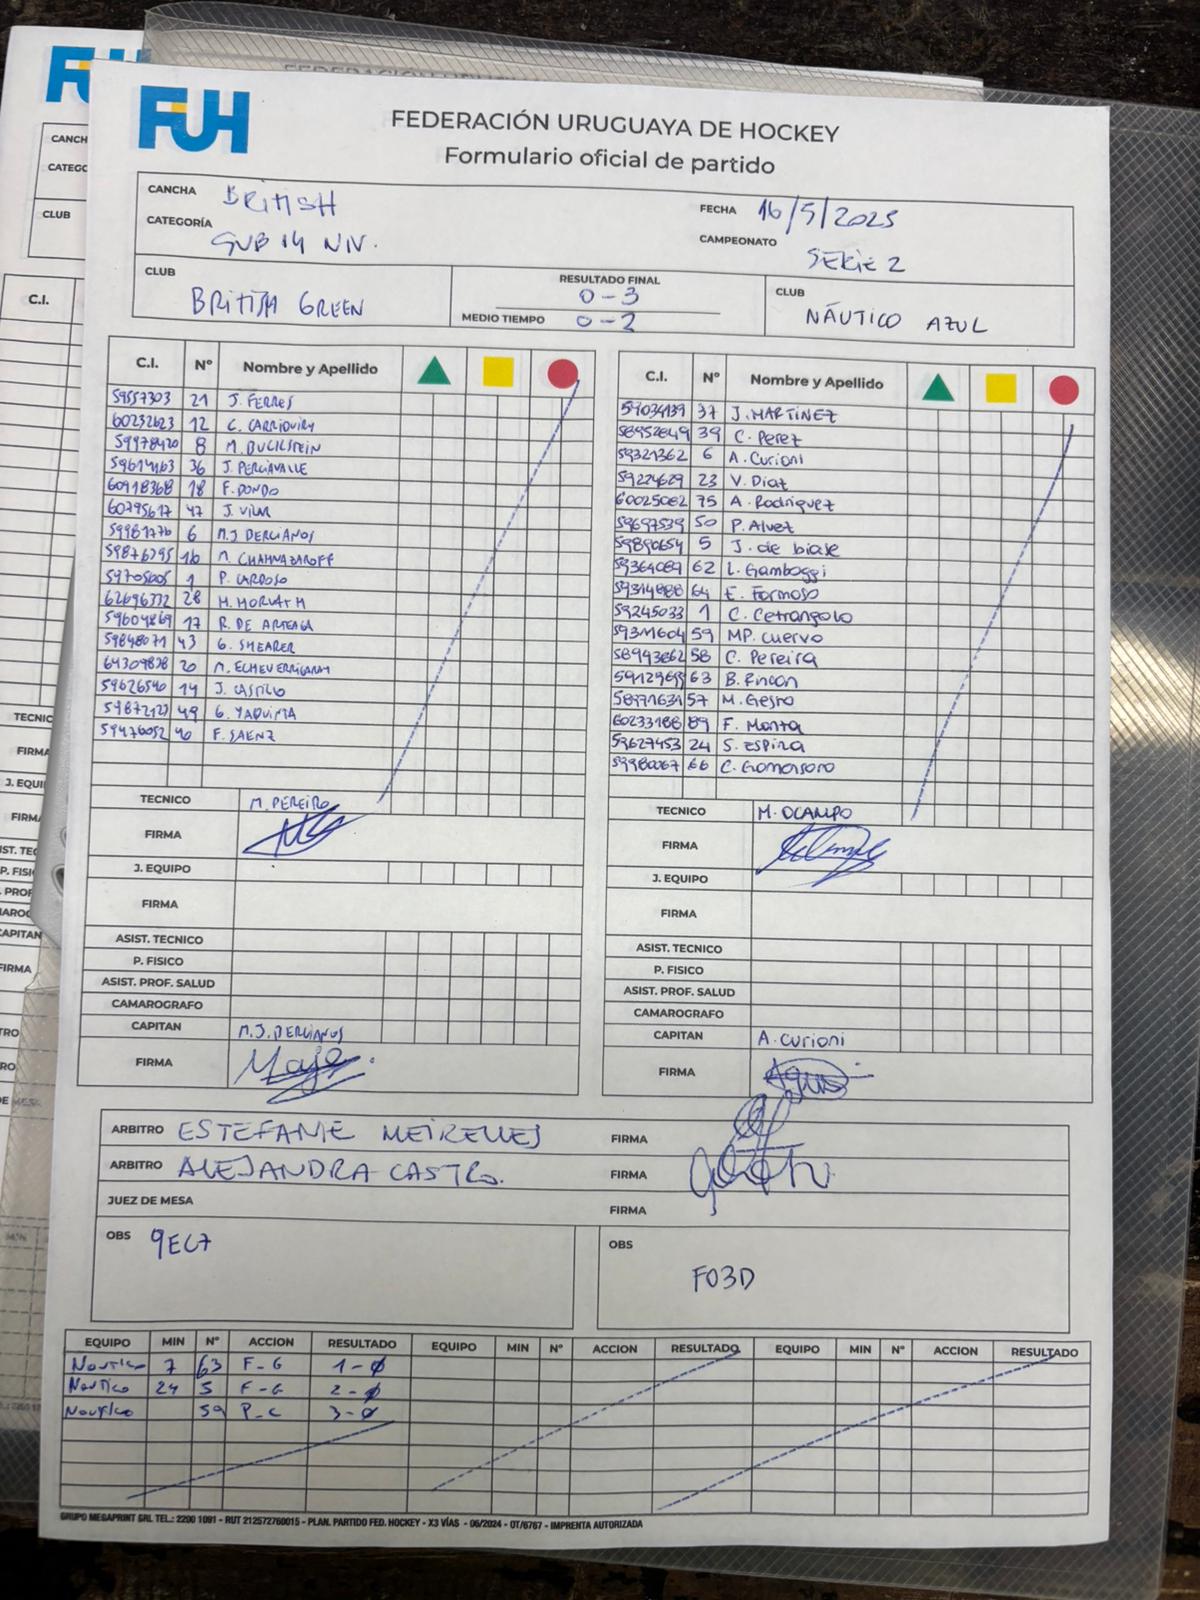 FUH
FEDERACIÓN URUGUAYA DE HOCKEY
Formulario oficial de partido
CANCHA BRITISH
FECHA 16/5/2025
CATEGORÍA SUB 14 NIV.
CAMPEONATO SERIE 2
CLUB BRITISH GREEN
RESULTADO FINAL 0-3
MEDIO TIEMPO 0-2
CLUB NÁUTICO AZUL
C.I. Nº Nombre y Apellido
59557303 21 J. FERRES
60232623 12 C. CARRIQUIRY
59978420 8 M. BUCKSTEIN
59614163 36 J. PERCIAVALLE
60918368 18 F. DONDO
60795617 47 J. VILAR
59981776 6 M.J DERCIANOS
59876295 16 M. CHAHNAZAROFF
59705605 1 P. CARDOSO
62696332 28 M. HORVATH
59604869 17 R. DE ARTEAGA
59848071 43 G. SHEARER
64309828 20 M. ECHEVERRIGARAY
59626540 14 J. CASTILLO
59872127 49 G. YAQUINTA
59476052 40 F. SAENZ
TECNICO M. PEREIRO
FIRMA
J. EQUIPO
FIRMA
ASIST. TECNICO
P. FISICO
ASIST. PROF. SALUD
CAMAROGRAFO
CAPITAN M.J. DERCIANOS
FIRMA Majo
C.I. Nº Nombre y Apellido
59034139 37 J. MARTINEZ
58952849 39 C. Perez
59321362 6 A. Curioni
59224629 23 V. Diaz
60025082 75 A. Rodriguez
59697539 50 P. Alvez
59890654 5 J. de biase
59364089 62 L. Gamboggi
59314888 64 E. Formoso
59245033 1 C. Cetrangolo
59311604 59 MP. Cuervo
58943862 58 C. Pereira
59129695 63 B. Rincon
58971634 57 M. Gesto
60233188 89 F. Manta
59627453 24 S. ESPINA
59980067 66 C. Gomensoro
TECNICO M. OCAMPO
FIRMA
J. EQUIPO
FIRMA
ASIST. TECNICO
P. FISICO
ASIST. PROF. SALUD
CAMAROGRAFO
CAPITAN A. Curioni
FIRMA
ARBITRO ESTEFANIE MEIRELLES FIRMA
ARBITRO ALEJANDRA CASTRO. FIRMA
JUEZ DE MESA FIRMA
OBS 9EC7
OBS F03D
EQUIPO MIN Nº ACCION RESULTADO EQUIPO MIN Nº ACCION RESULTADO EQUIPO MIN Nº ACCION RESULTADO
Nautico 7 63 F-G 1-0
Nautico 24 5 F-G 2-0
Nautico 59 P-C 3-0
GRUPO MEGAPRINT SRL TEL.: 2200 1091 - RUT 212572760015 - PLAN. PARTIDO FED. HOCKEY - X3 VÍAS - 06/2024 - OT/6767 - IMPRENTA AUTORIZADA